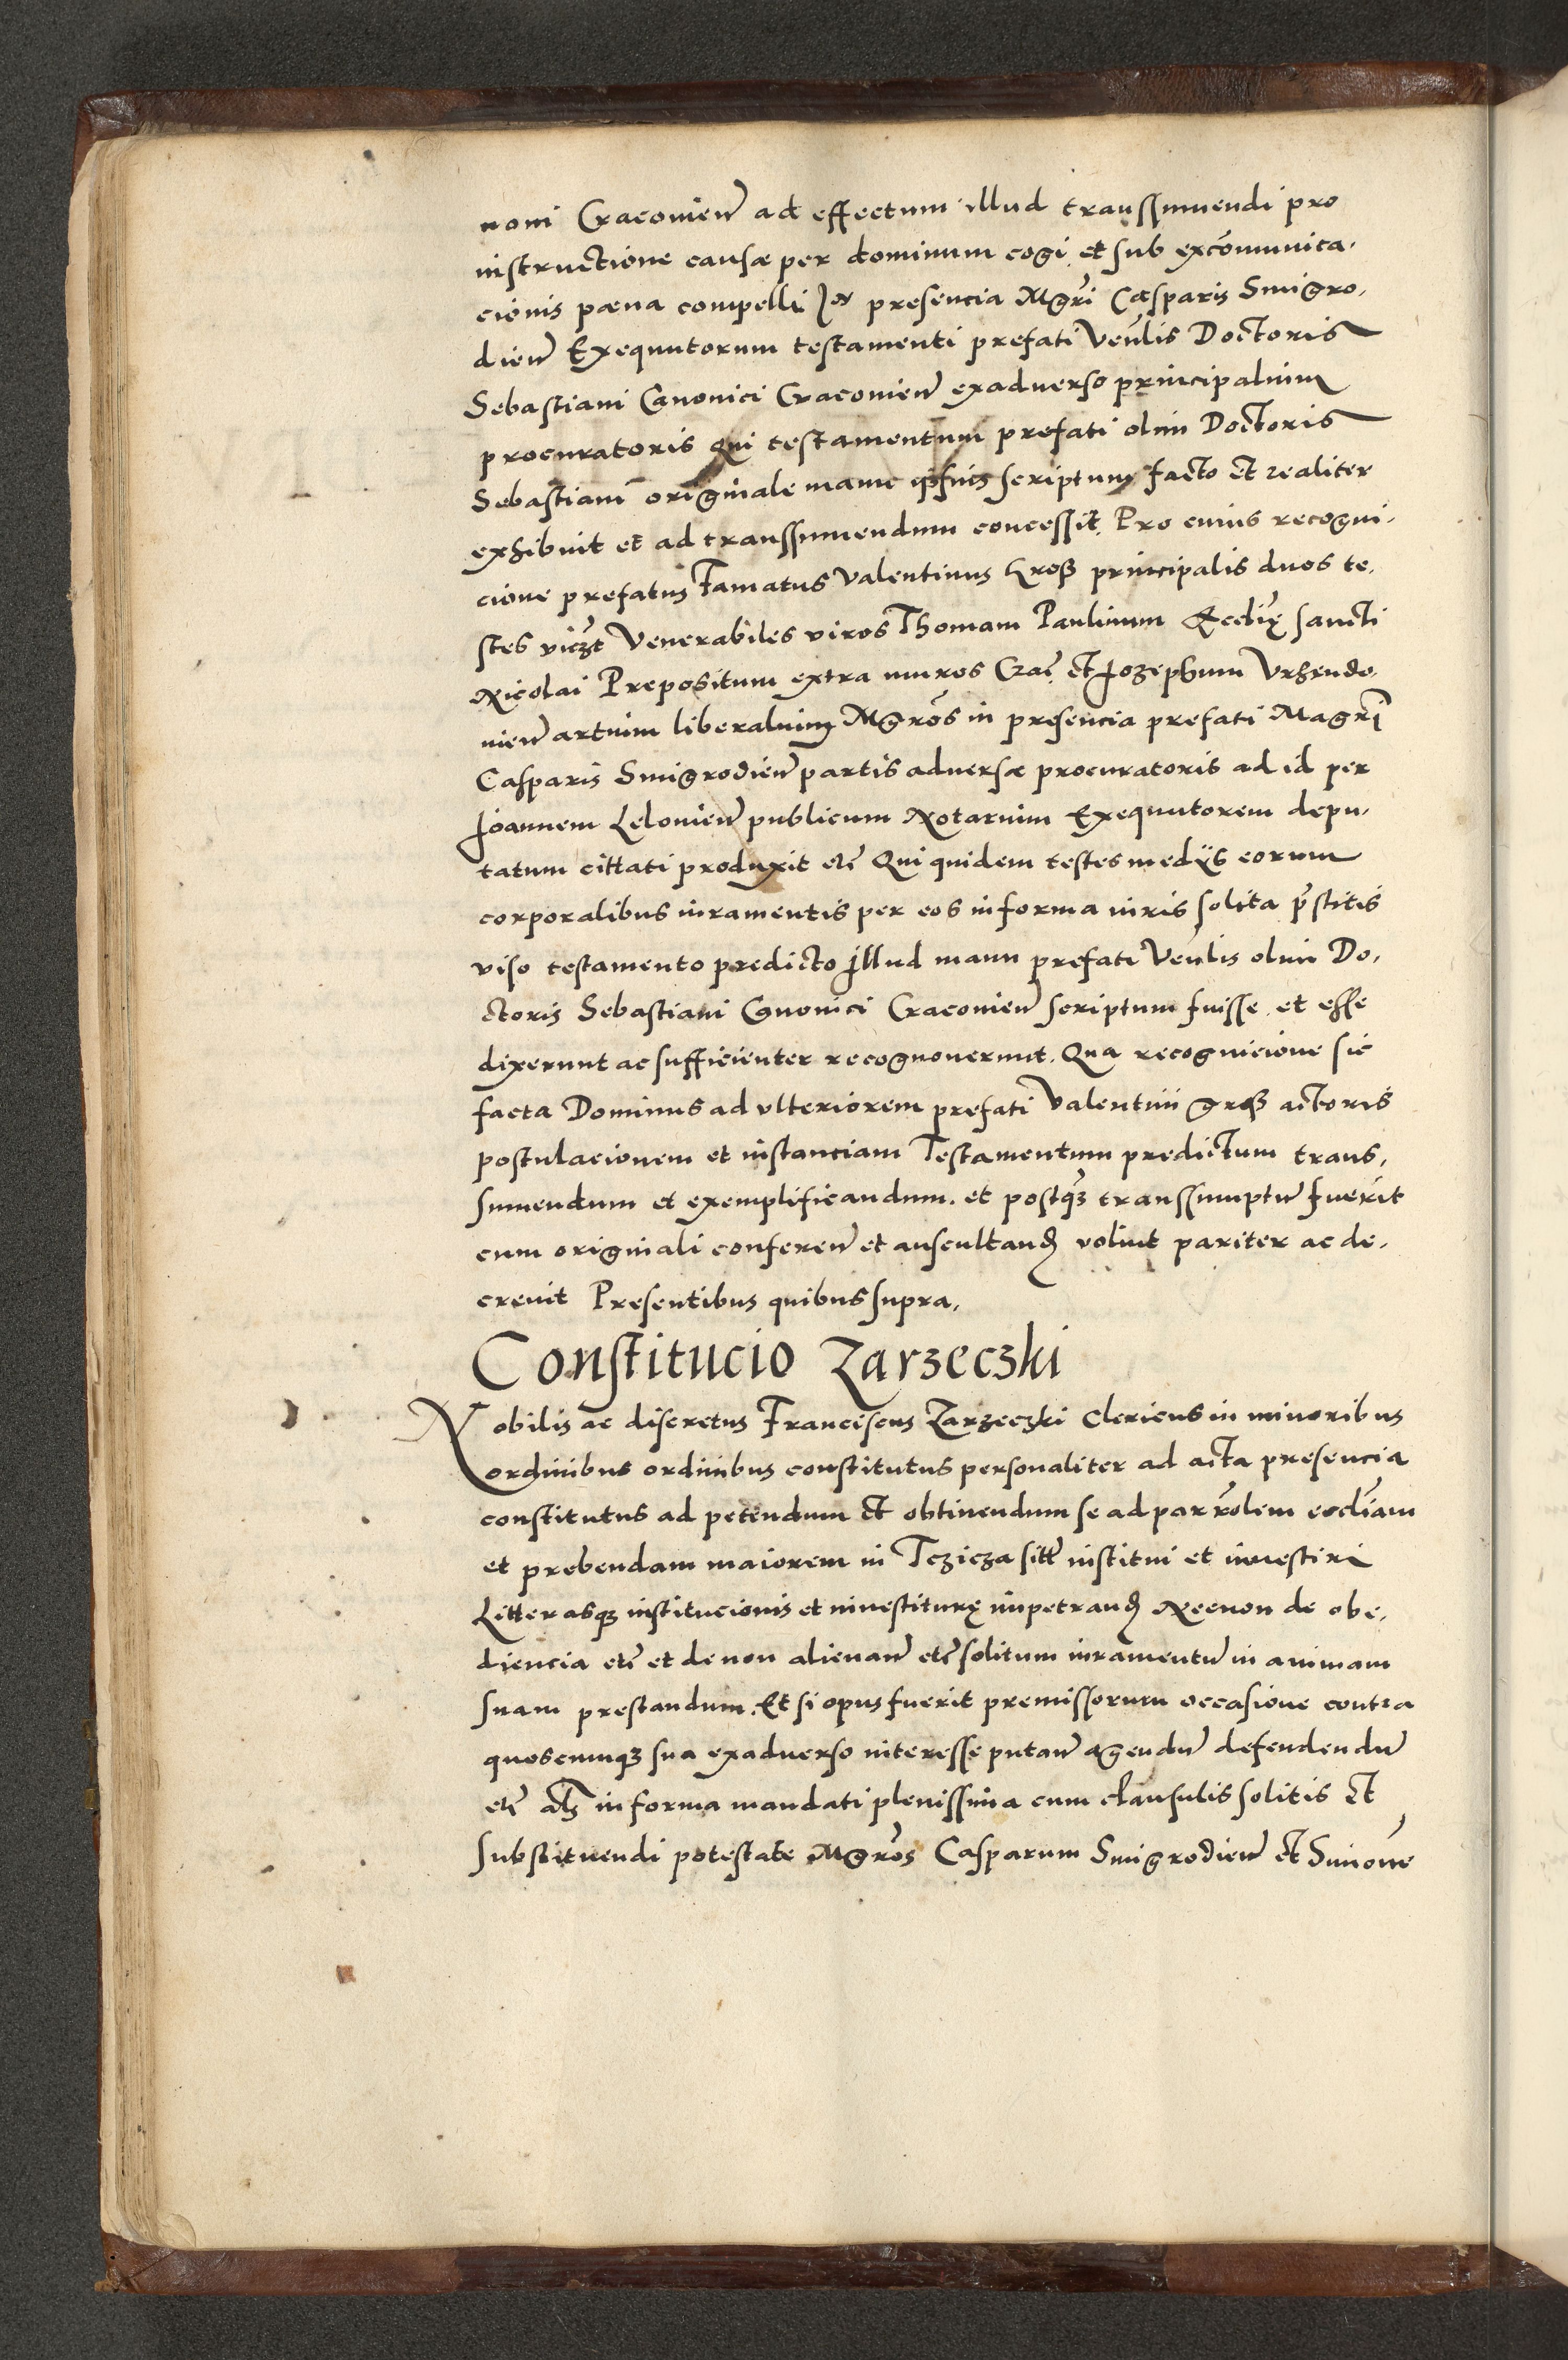 noni Cracovien̄ ad effectum illud transsumendi pro
instructione causæ per dominum cogi et sub excōmunica-
cionis pœna compelli Jn presencia Mgr̄i Casparis Smigro-
dien̄ Exequutorum testamenti prefati Ven̄lis Doctoris
Sebastiani Canonici Cracovien̄ exadverso principalium
procuratoris Qui testamentum prefati olim Doctoris
Sebastiani originale manu ipsius scriptum facto et realiter
exhibuit et ad transsumendum concessit. Pro cuius recogni-
cione prefatus Famatus Valentinus Kroß principalis duos te-
stes vicꝫt Venerabiles viros Thomam Paulinum Eccli̅ę sancti
Nicolai Prepositum extra muros Crac̄ et Jozephum Urzendo-
vien̄ artium liberalium Mgr̄os in presencia prefati Magr̄i
Casparis Smigrodien̄ partis adversæ procuratoris ad id per
Joannem Lelovien̄ publicum Notarium Exequutorem depu-
tatum cittati produxit etc̄ Qui quidem testes medijs eorum
corporalibus iuramentis per eos in forma iuris solita p̄stitis
viso testamento predicto Jllud manu prefati Ven̄lis olim Do-
ctoris Sebastiani Canonici Cracovien̄ scriptum fuisse et esse
dixerunt ac sufficienter recognoverunt. Qua recognicione sic
facta Dominus ad ulteriorem prefati Valentini Groß actoris
postulacionem et instanciam Testamentum predictum trans-
sumendum et exemplificandum. et postqꝫ transsumptū fuerit
cum originali conferen̄ et auscultand̄ voluit pariter ac de-
crevit Presentibus quibus supra.
Constitucio Zarzeczki
Nobilis ac discretus Franciscus Zarzeczki Clericus in minoribus
ordinibus ordinibus constitutus personaliter ad acta presencia
constitutus ad petendum et obtinendum se ad parr̄olem eccl̄iam
et prebendam maiorem in Tczicza sitt̄ institui et investiri
Litterasqꝫ institucionis et investiturę impetrand̄ Necnon de obe-
diencia etc̄ et de non alienan̄ etc̄ solitum iuramentū in animam
suam prestandum. Et si opus fuerit premissorum occasione contra
quoscumqꝫ sua exadverso interesse putan̄ agendū defendendū
etc̄ al̄s in forma mandati plenissima cum clausulis solitis et
substituendi potestate Mgr̄os Casparum Smigrodien̄ et Simonē